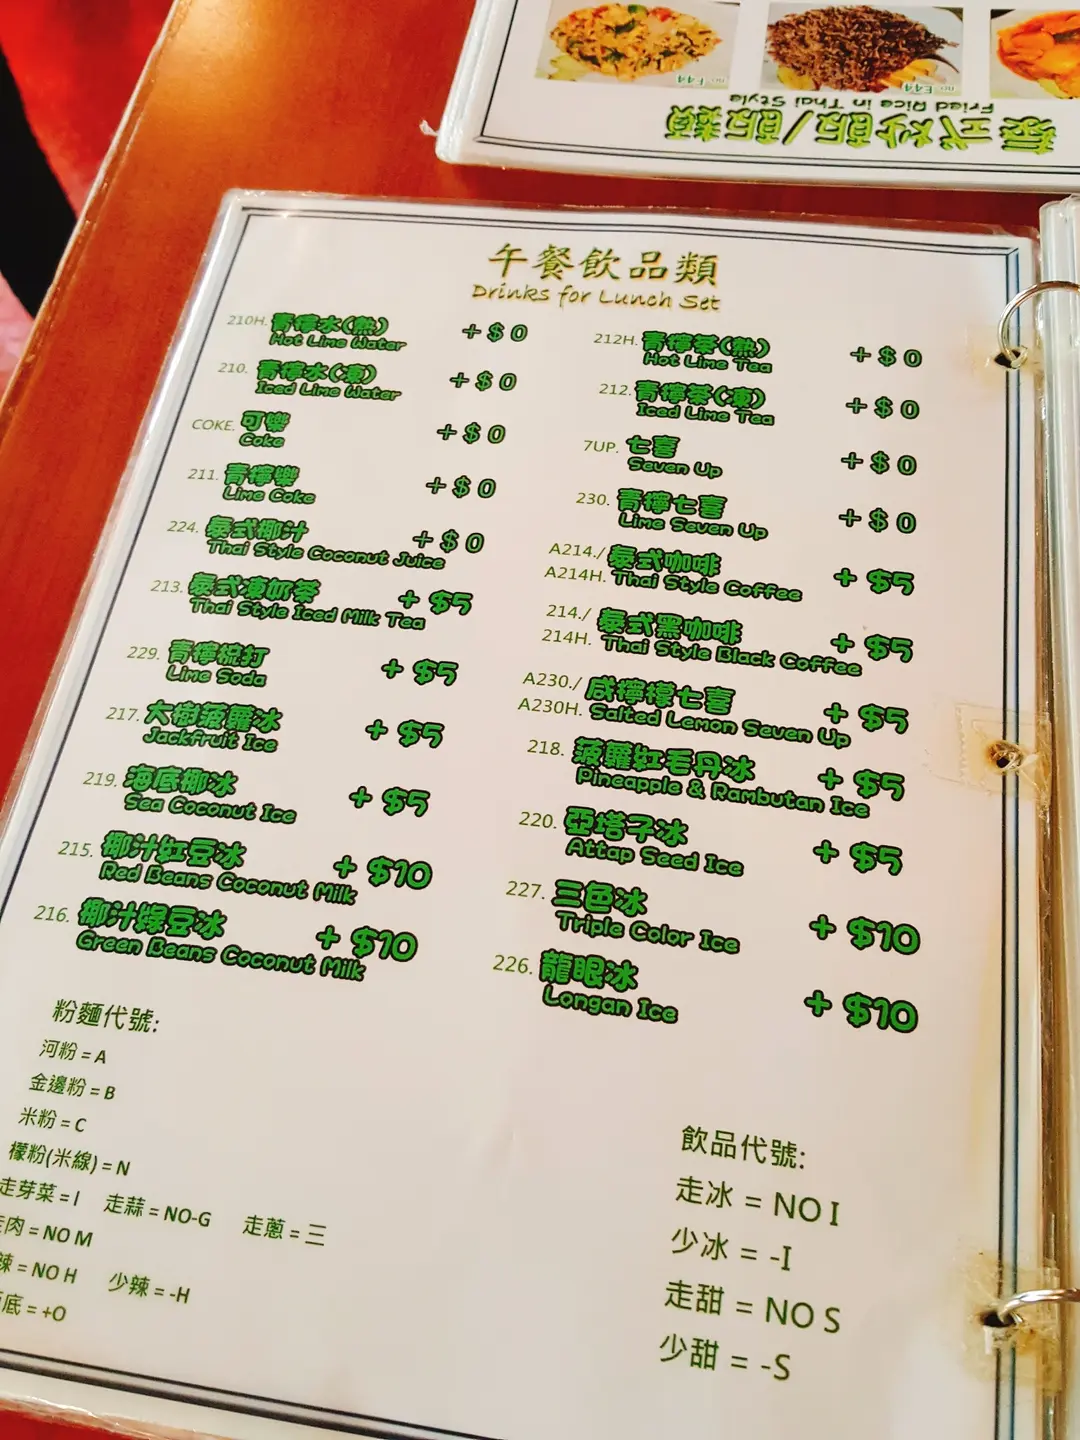 no. E44
no. E44
Fried Rice in Thai Style
泰式炒飯/飯類
午餐飲品類
Drinks for Lunch Set
210H. 青檸水(熱) + $ 0
Hot Lime Water
210. 青檸水(凍) + $ 0
Iced Lime Water
COKE. 可樂 + $ 0
Coke
211. 青檸樂 + $ 0
Lime Coke
224. 泰式椰汁 + $ 0
Thai Style Coconut Juice
213. 泰式凍奶茶 + $5
Thai Style Iced Milk Tea
229. 青檸梳打 + $5
Lime Soda
217. 大樹菠蘿冰 + $5
Jackfruit Ice
219. 海底椰冰 + $5
Sea Coconut Ice
215. 椰汁紅豆冰 + $10
Red Beans Coconut Milk
216. 椰汁綠豆冰 + $10
Green Beans Coconut Milk
212H. 青檸茶(熱) + $ 0
Hot Lime Tea
212. 青檸茶(凍) + $ 0
Iced Lime Tea
7UP. 七喜 + $ 0
Seven Up
230. 青檸七喜 + $ 0
Lime Seven Up
A214./ 泰式咖啡 + $5
A214H. Thai Style Coffee
214./ 泰式黑咖啡 + $5
214H. Thai Style Black Coffee
A230./ 咸檸檬七喜 + $5
A230H. Salted Lemon Seven Up
218. 菠蘿紅毛丹冰 + $5
Pineapple & Rambutan Ice
220. 亞塔子冰 + $5
Attap Seed Ice
227. 三色冰 + $10
Triple Color Ice
226. 龍眼冰 + $10
Longan Ice
粉麵代號:
河粉 = A
金邊粉 = B
米粉 = C
檬粉(米線) = N
走芽菜 = I 走蒜 = NO-G 走蔥 = 三
走肉 = NO M
辣 = NO H 少辣 = -H
底 = +O
飲品代號:
走冰 = NO I
少冰 = -I
走甜 = NO S
少甜 = -S